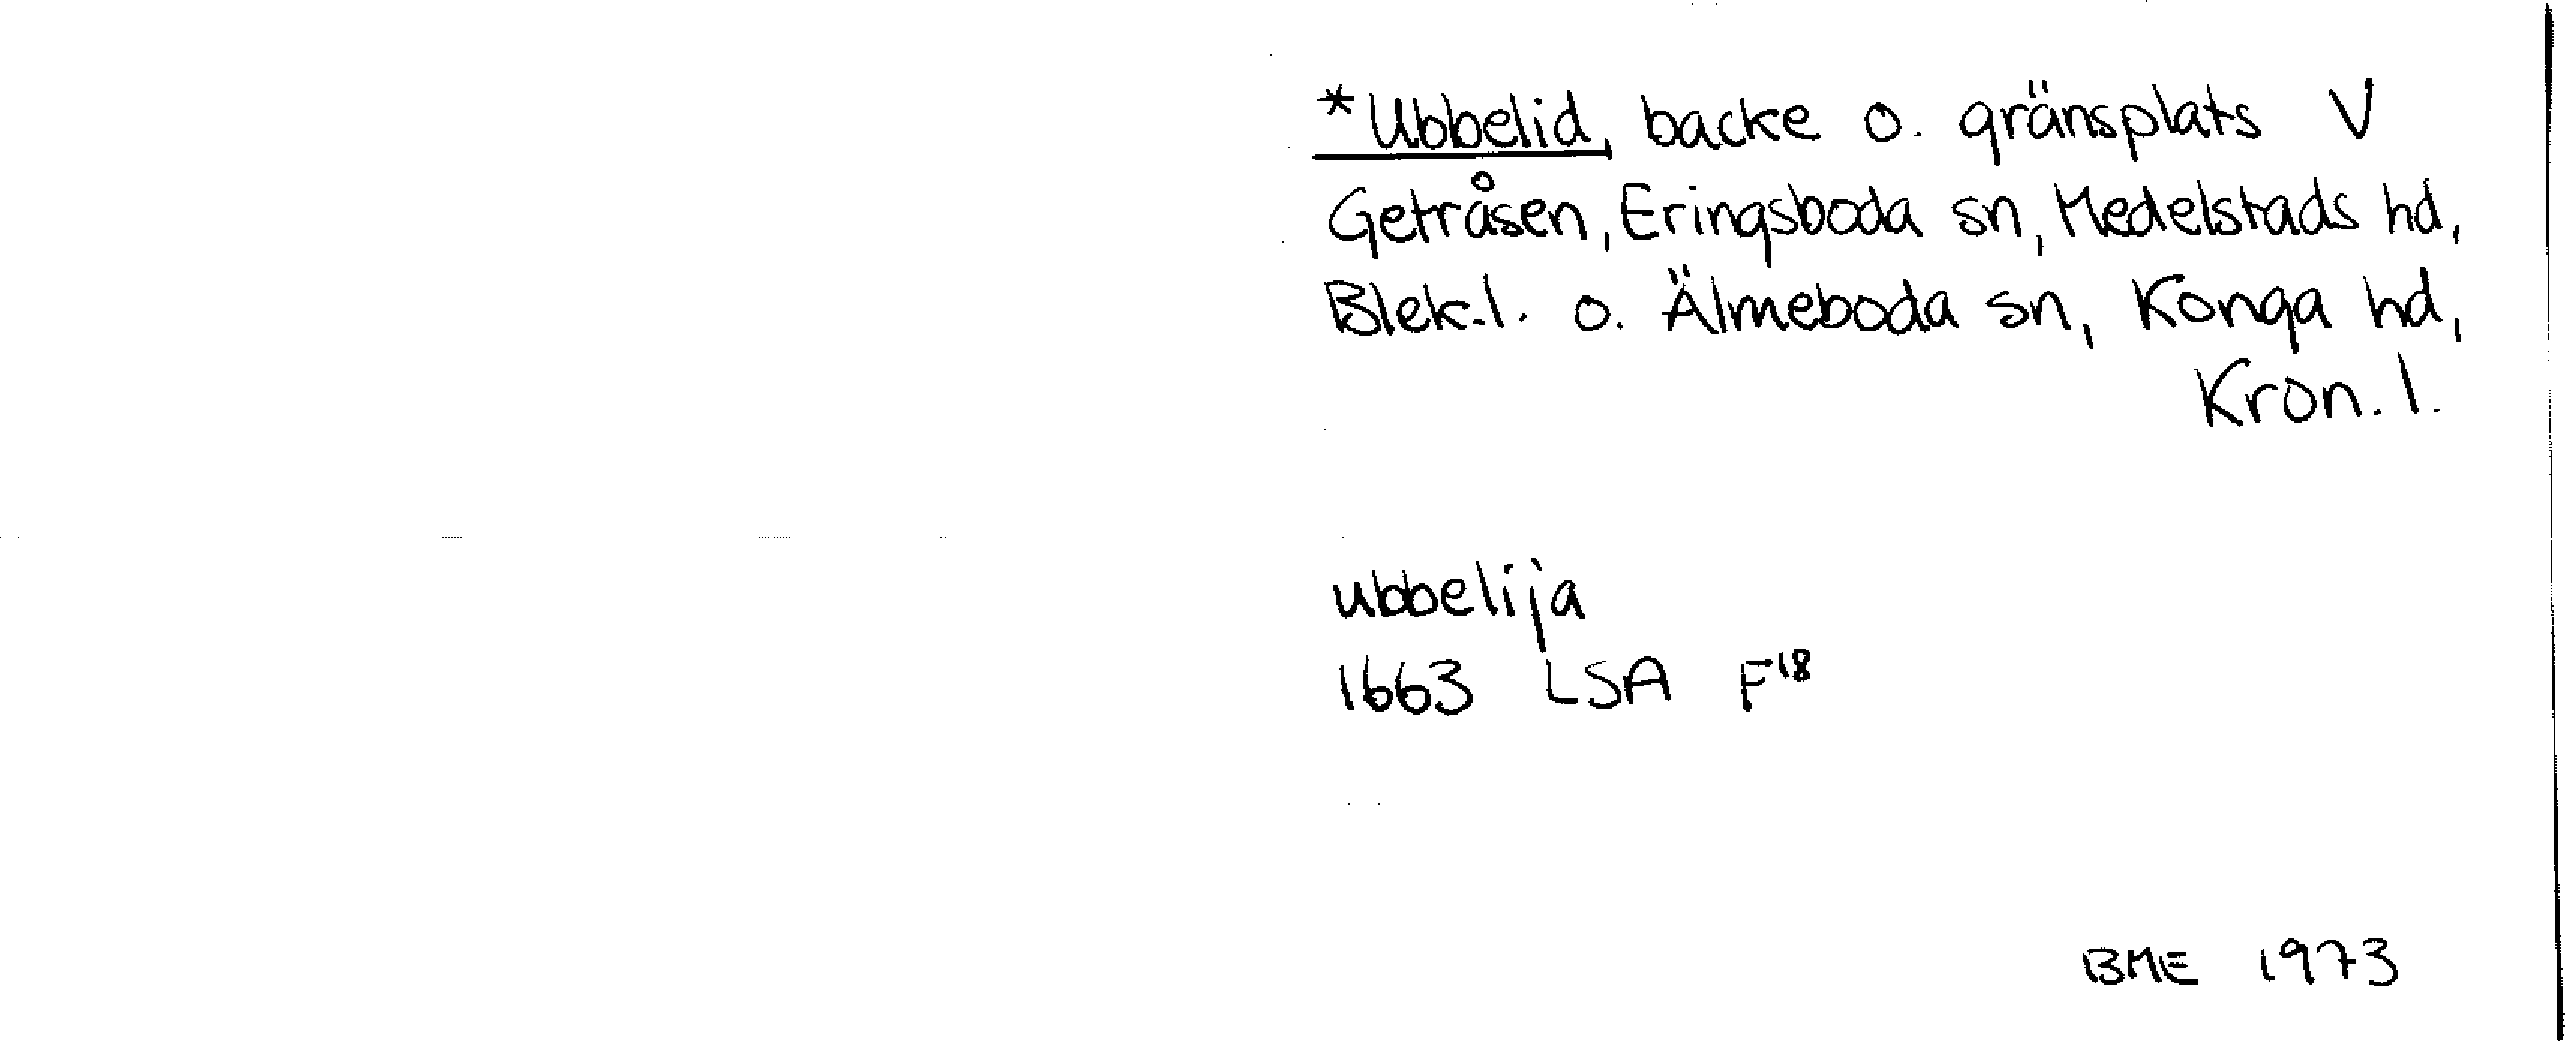 *Ubbelid, backe o. gränsplats V
Getråsen, Eringsboda sn, Medelstads hd,
Blek.l. o. Älmeboda sn, Konga hd,
Kron.l.
ubbelija
1663 LSA F¹⁸
BME 1973